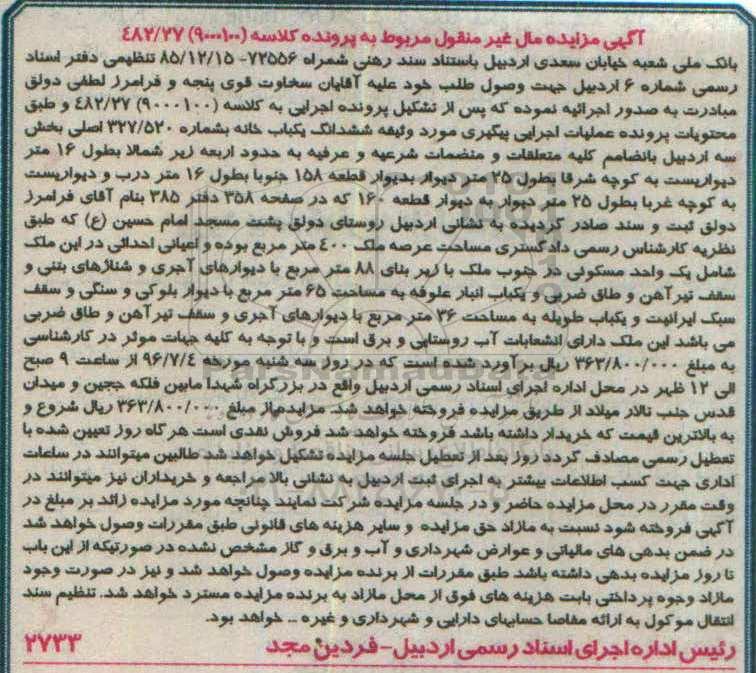 آگهی مزایده مال غیر منقول مربوط به پرونده کلاسه (۹۰۰۰۱۰۰) ۴۸۲/۲۷
بانک ملی شعبه خیابان سعدی اردبیل باستناد سند رهنی شمراه ۷۲۵۵۶- ۸۵/۱۲/۱۵ تنظیمی دفتر اسناد
رسمی شماره ۶ اردبیل جهت وصول طلب خود علیه آقایان سخاوت قوی پنجه و فرامرز لطفی دولق
مبادرت به صدور اجرائیه نموده که پس از تشکیل پرونده اجرایی به کلاسه (۹۰۰۰۱۰۰) ۴۸۲/۲۷ و طبق
محتویات پرونده عملیات اجرایی پیگیری مورد وثیقه ششدانگ یکباب خانه بشماره ۳۲۷/۵۲۰ اصلی بخش
سه اردبیل بانضامم کلیه متعلقات و منضمات شرعیه و عرفیه به حدود اربعه زیر شمالا بطول ۱۶ متر
دیواریست به کوچه شرقا بطول ۲۵ متر دیوار بدیوار قطعه ۱۵۸ جنوبا بطول ۱۶ متر درب و دیواریست
به کوچه غربا بطول ۲۵ متر دیوار به دیوار قطعه ۱۶۰ که در صفحه ۳۵۸ دفتر ۳۸۵ بنام آقای فرامرز
دولق ثبت و سند صادر گردیده به نشانی اردبیل روستای دولق پشت مسجد امام حسین (ع) که طبق
نظریه کارشناس رسمی دادگستری مساحت عرصه ملک ۴۰۰ متر مربع بوده و اعیانی احداثی در این ملک
شامل یک واحد مسکونی در جنوب ملک با زیر بنای ۸۸ متر مربع با دیوارهای آجری و شناژهای بتنی و
سقف تیرآهن و طاق ضربی و یکباب انبار علوفه به مساحت ۶۵ متر مربع با دیوار بلوکی و سنگی و سقف
سبک ایرانیت و یکباب طویله به مساحت ۳۶ متر مربع با دیوارهای آجری و سقف تیرآهن و طاق ضربی
می باشد این ملک دارای انشعابات آب روستایی و برق است و با توجه به کلیه جهات موثر در کارشناسی
به مبلغ ۳۶۳/۸۰۰/۰۰۰ ریال برآورد شده است که در روز سه شنبه مورخه ۹۶/۷/۴ از ساعت ۹ صبح
الی ۱۲ ظهر در محل اداره اجرای اسناد رسمی اردبیل واقع در بزرگراه شهدا مابین فلکه ججین و میدان
قدس جنب تالار میلاد از طریق مزایده فروخته خواهد شد. مزایده از مبلغ ۳۶۳/۸۰۰/۰۰۰ ریال شروع و
به بالاترین قیمت که خریدار داشته باشد فروخته خواهد شد فروش نقدی است هر گاه روز تعیین شده با
تعطیل رسمی مصادف گردد روز بعد از تعطیل جلسه مزایده تشکیل خواهد شد طالبین میتوانند در ساعات
اداری جهت کسب اطلاعات بیشتر به اجرای ثبت اردبیل به نشانی بالا مراجعه و خریداران نیز میتوانند در
وقت مقرر در محل مزایده حاضر و در جلسه مزایده شرکت نمایند چنانچه مورد مزایده زائد بر مبلغ در
آگهی فروخته شود نسبت به مازاد حق مزایده و سایر هزینه های قانونی طبق مقررات وصول خواهد شد
در ضمن بدهی های مالیاتی و عوارض شهرداری و آب و برق و گاز مشخص نشده در صورتیکه از این باب
تا روز مزایده بدهی داشته باشد طبق مقررات از برنده مزایده وصول خواهد شد و نیز در صورت وجود
مازاد وجوه پرداختی بابت هزینه های فوق از محل مازاد به برنده مزایده مسترد خواهد شد. تنظیم سند
انتقال موکول به ارائه مفاصا حسابهای دارایی و شهرداری و غیره ... خواهد بود.
رئیس اداره اجرای اسناد رسمی اردبیل - فردین مجد ۲۷۳۳